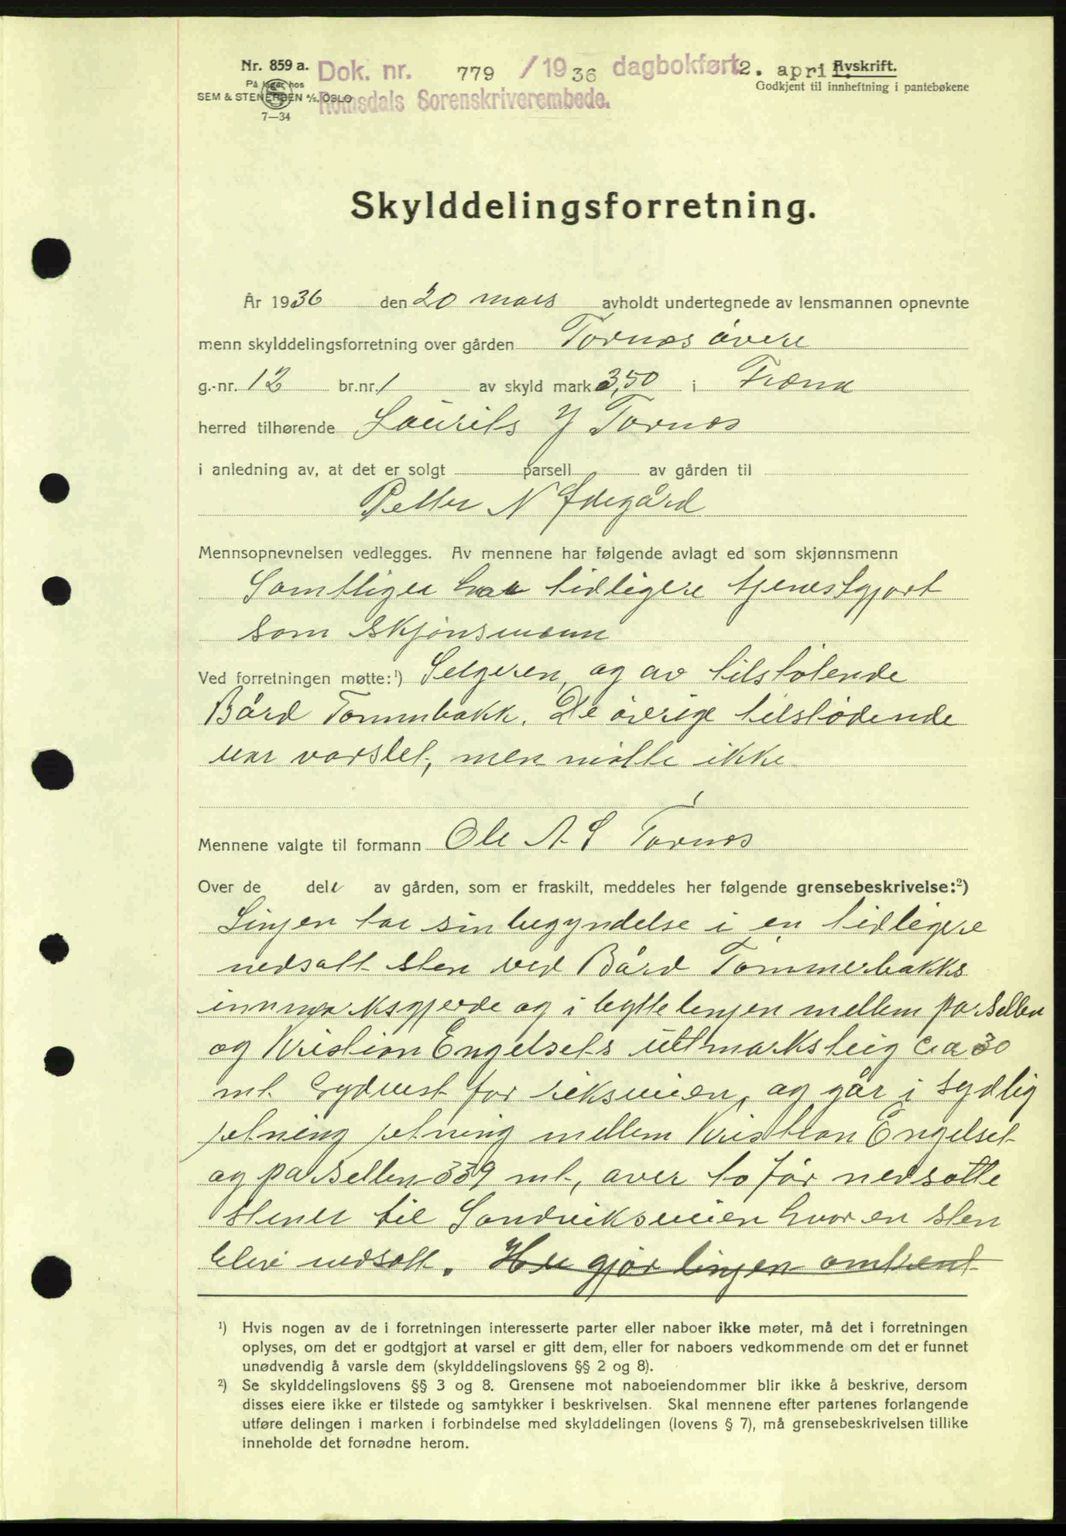 Nr. 859 a. Dok. nr. 779 /1936 dagbokført 2. april. Avskrift.
På lager hos
SEM & STENERSEN A/S, OSLO
Romsdals Sorenskriverembede.
Godkjent til innheftning i pantebøkene
7—34
Skylddelingsforretning.
År 1936 den 20 mars avholdt undertegnede av lensmannen opnevnte
menn skylddelingsforretning over gården Tornes øvere
g.-nr. 12 br.nr. 1 av skyld mark 3,50 i Fræna
herred tilhørende Laurits J Tornes
i anledning av, at det er solgt parsell av gården til
Petter N Ødegård
Mennsopnevnelsen vedlegges. Av mennene har følgende avlagt ed som skjønnsmenn
Samtliger har tidligere tjenestgjort
som skjønsmenn
Ved forretningen møtte:¹) Selgeren, og av tilstøtende
Bård Tommbakk. De øvrige tilstødende
var varslet, men møtte ikke
Mennene valgte til formann Ole A. S Tornes
Over de dele av gården, som er fraskilt, meddeles her følgende grensebeskrivelse:²)
Linjen tar sin begyndelse i en tidligere
nedsatt sten ved Bård Tommerbakks
innmarksgjerde og i byttelinjen mellem parsellen
og Kristian Engelsets uttmarksteig ca 30
mt. Sydvest for riksveien, og går i sydlig
retning retning mellem Kristian Engelset
og parsellen 339 mt, over to før nedsatte
stener til Sandviksveien hvor en sten
blev nedsatt. Her gjør linjen omtrent
¹) Hvis nogen av de i forretningen interesserte parter eller naboer ikke møter, må det i forretningen
oplyses, om det er godtgjort at varsel er gitt dem, eller for naboers vedkommende om det er funnet
unødvendig å varsle dem (skylddelingslovens §§ 2 og 8).
²) Se skylddelingslovens §§ 3 og 8. Grensene mot naboeiendommer blir ikke å beskrive, dersom
disses eiere ikke er tilstede og samtykker i beskrivelsen. Skal mennene efter partenes forlangende
utføre delingen i marken i forbindelse med skylddelingen (lovens § 7), må grensebeskrivelsen tillike
inneholde det fornødne herom.